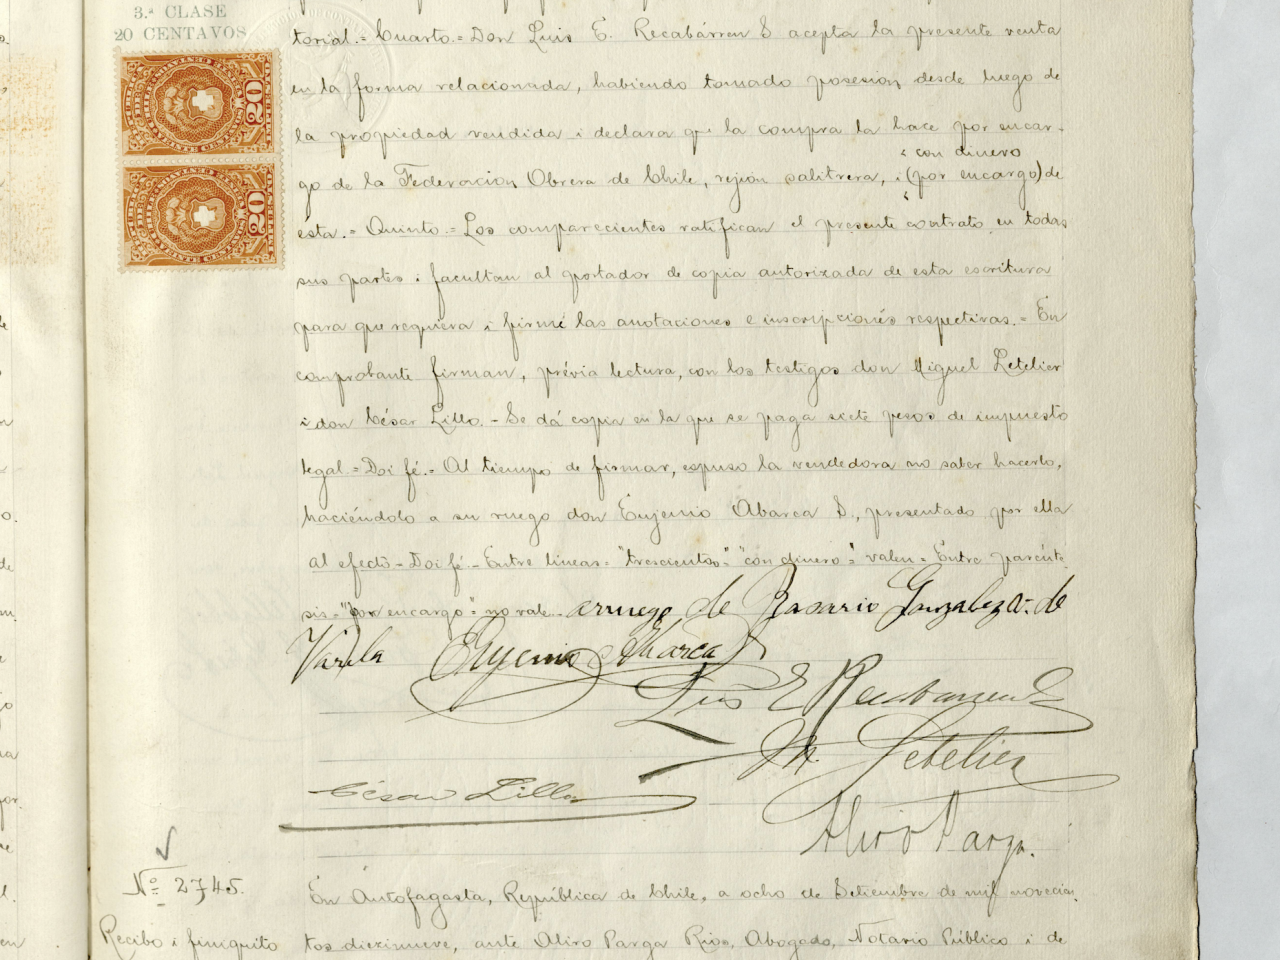 3.ª CLASE
20 CENTAVOS
torial.= Cuarto.= Don Luis E. Recabárren S acepta la presente venta
en la forma relacionada, habiendo tomado posesion desde luego de
la propiedad vendida i declara que la compra la hace por encar-
con dinero
go de la Federacion Obrera de Chile, rejion salitrera, i (por encargo) de
esta.= Quinto.= Los comparecientes ratifican el presente contrato en todas
sus partes i facultan al portador de copia autorizada de esta escritura
para que requiera i firme las anotaciones e inscripciones respectivas.= En
comprobante firman, prévia lectura, con los testigos don Miguel Letelier
i don César Lillo.- Se dá copia en la que se paga siete pesos de impuesto
legal.= Doi fé.= Al tiempo de firmar, espuso la vendedora no saber hacerlo,
haciéndolo a su ruego don Eujenio Abarca S., presentado por ella
al efecto - Doi fé.- Entre lineas= "trescientos"- "con dinero"= valen= Entre parénte
sis= "por encargo"= no vale- arruego de Rosario Gonzalez v. de
Varela Eujenio Abarca S
Luis E Recabarren S
M. Letelier
César Lillo
Aliro Parga.
Nº 2745.
En Antofagasta, República de Chile, a ocho de Setiembre de mil novecien
Recibo i finiquito
tos diezinueve, ante Aliro Parga Rios, Abogado, Notario Público i de